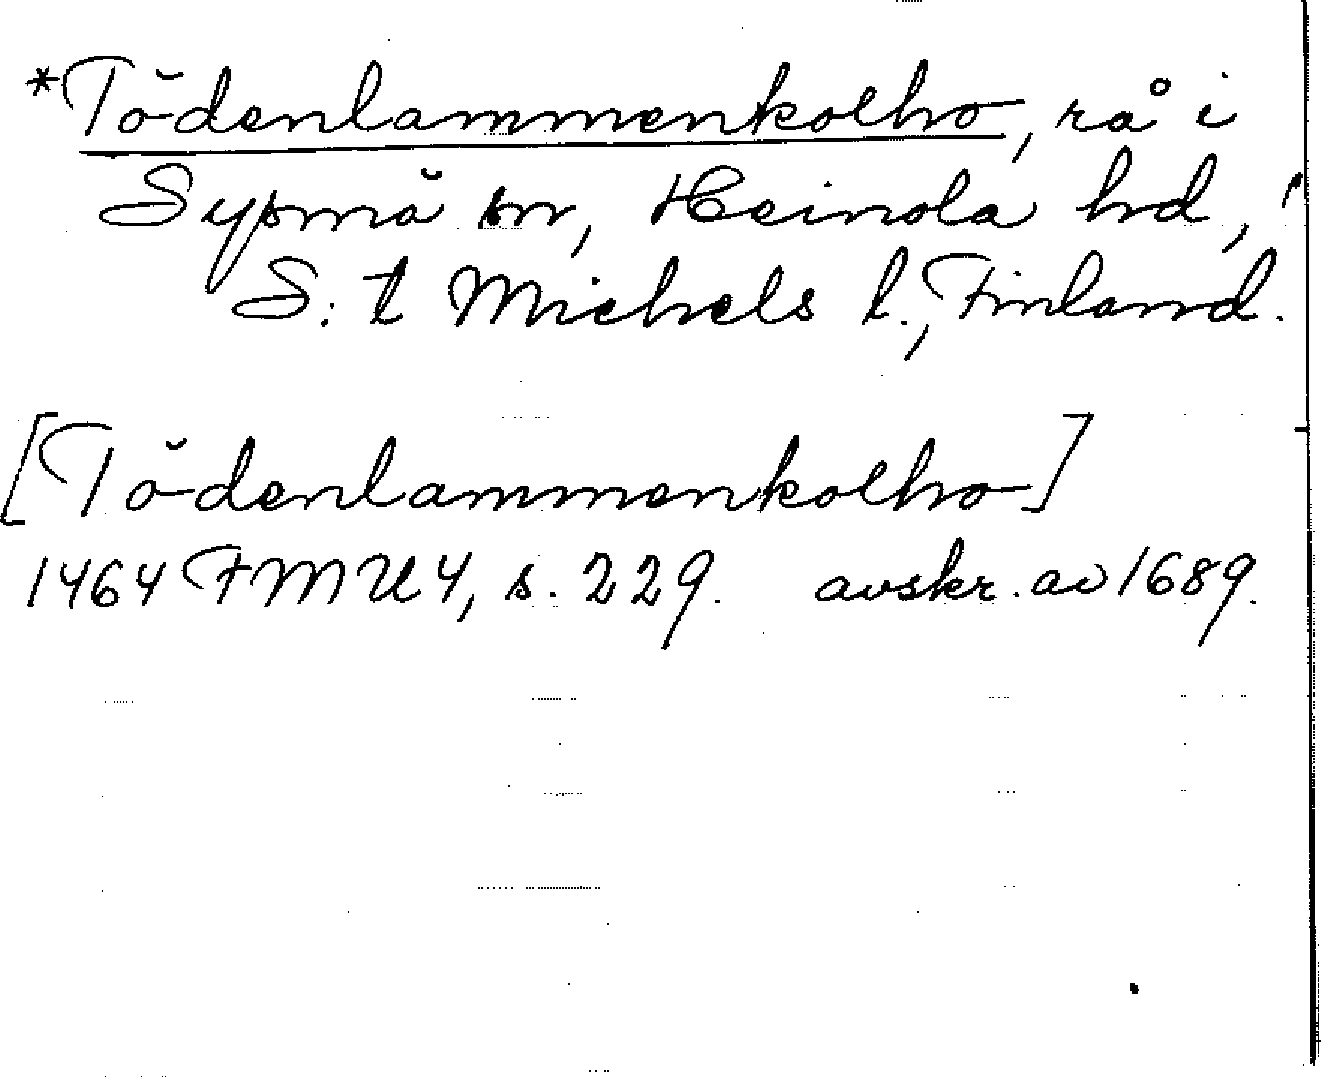 *Tödenlammenkolho, rå i
Sysmä sn, Heinola hd,
S:t Michels l., Finland.
[Tödenlammenkolho]
1464 FMU 4, s. 229. avskr. av 1689.